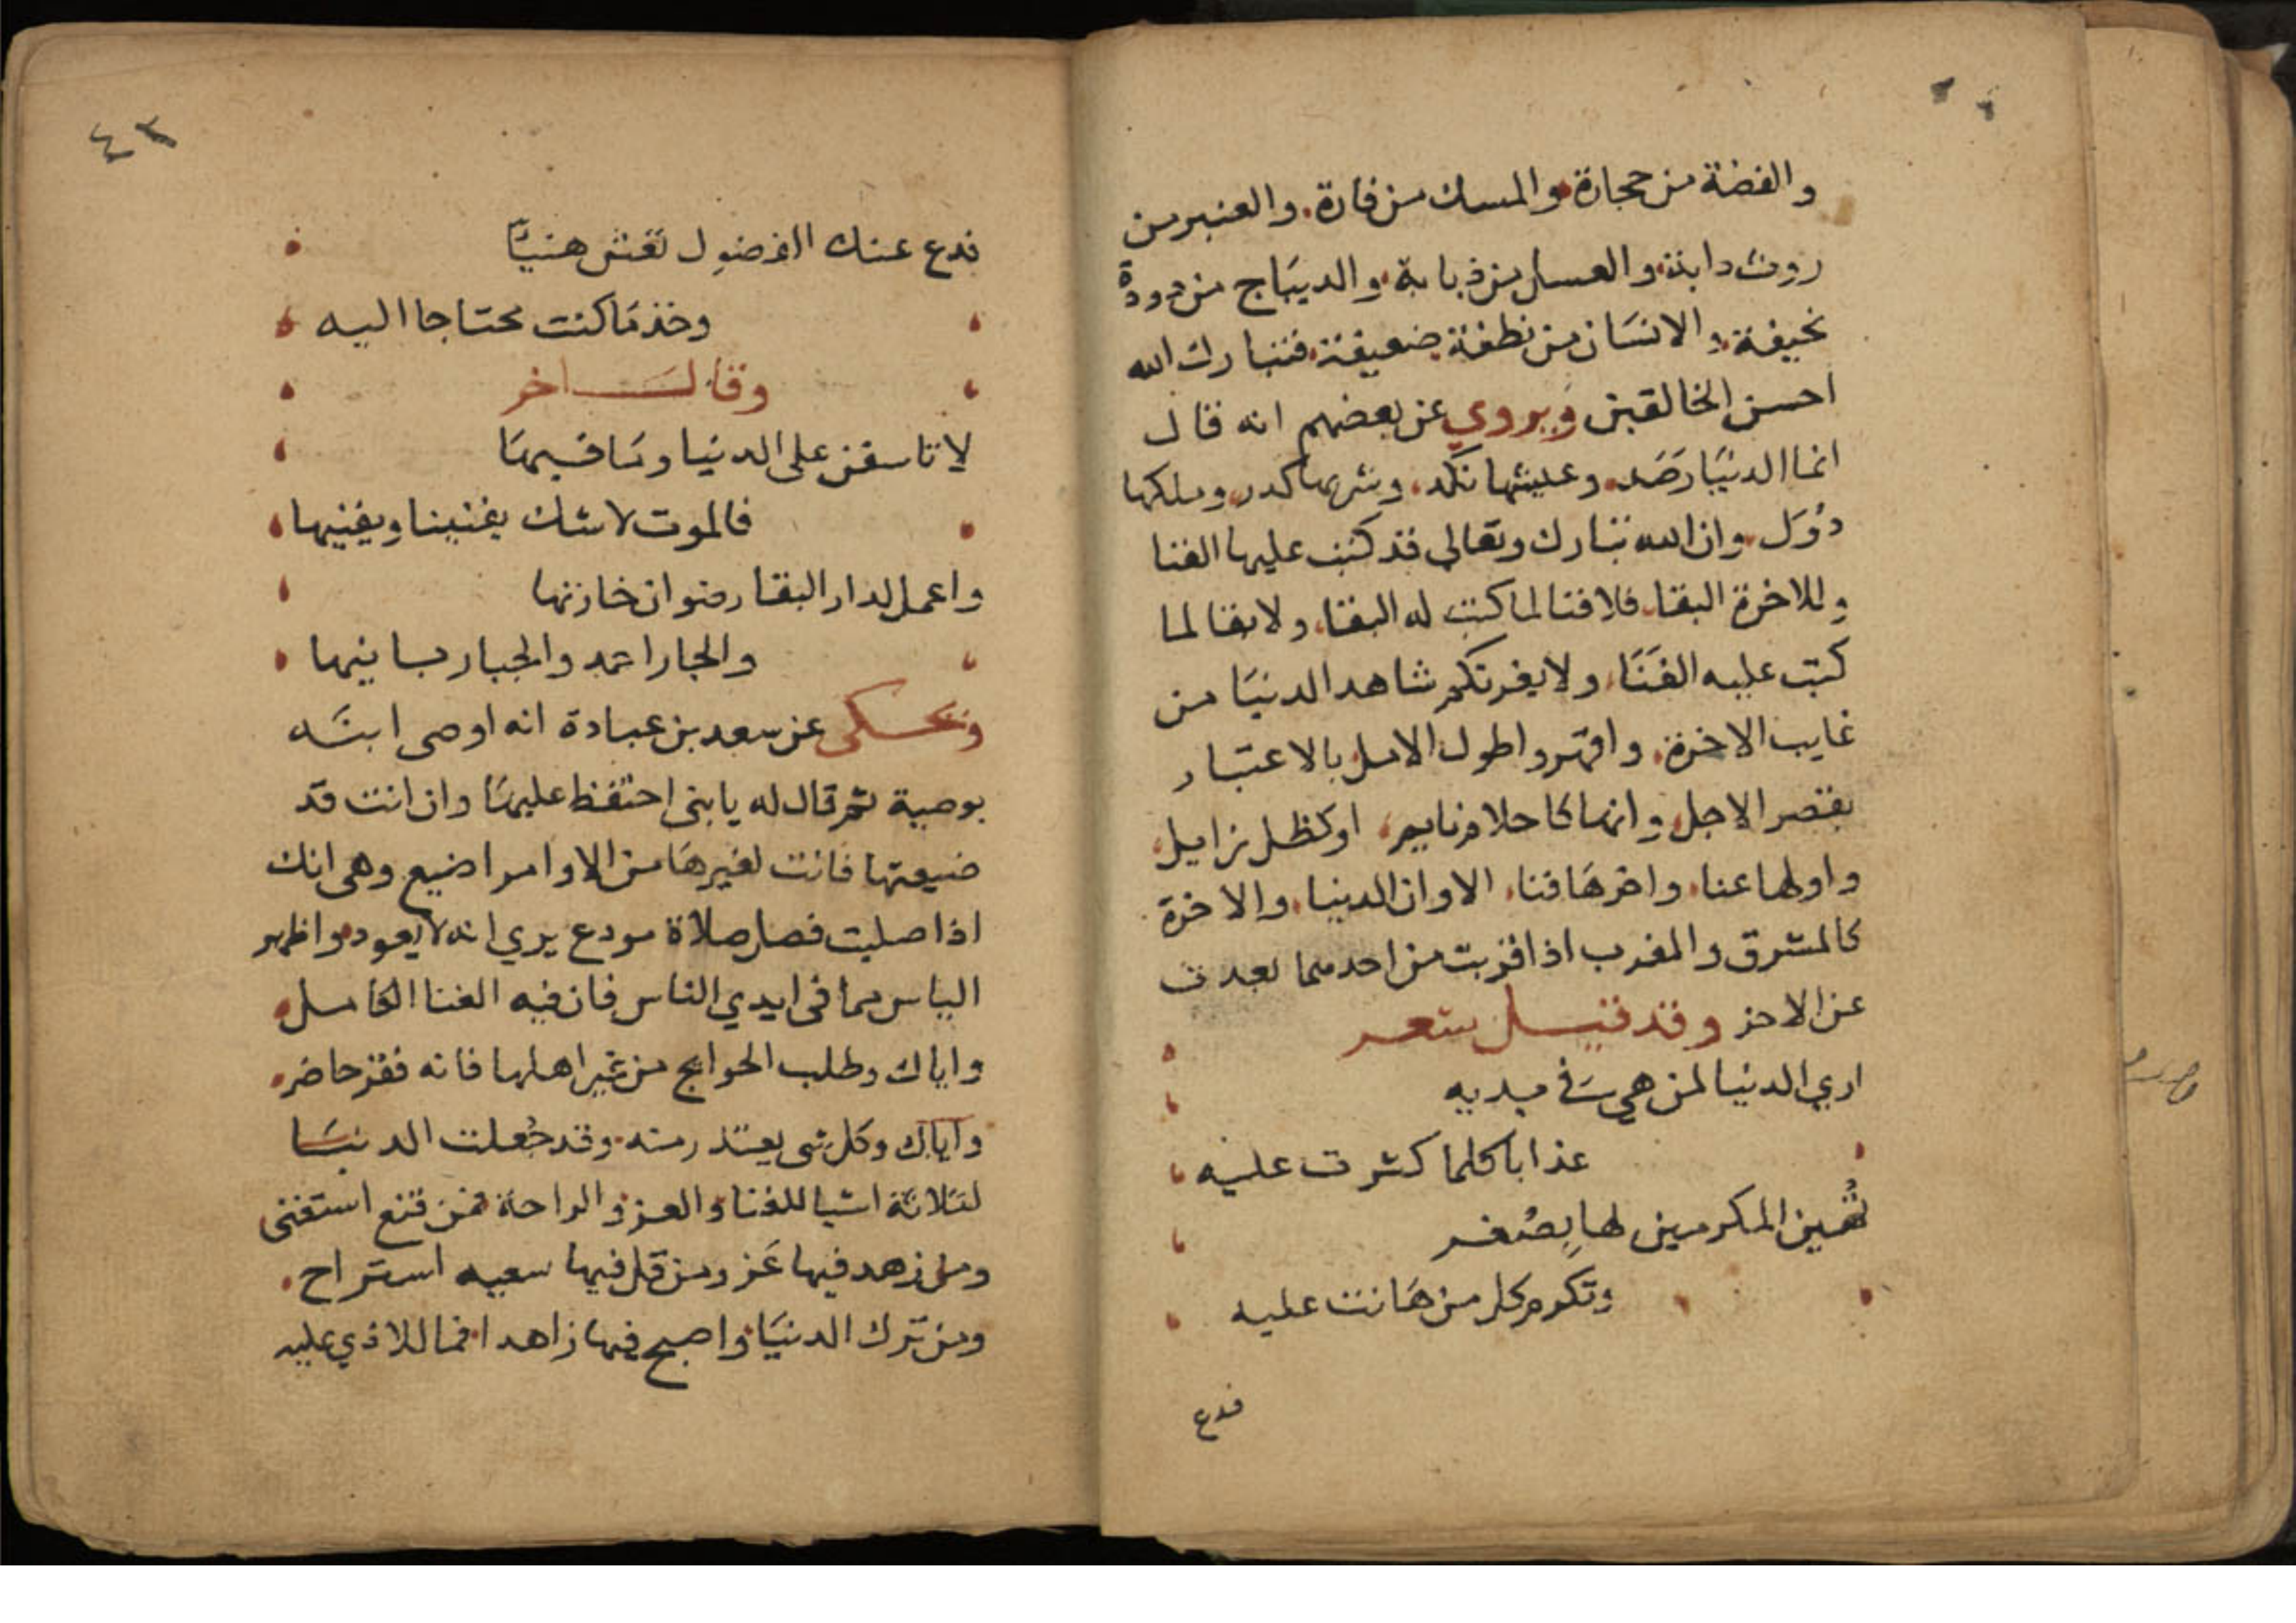 والفضة من حجارة والمسك من فارة. والعنبر من
روث دابة والعسل من ذبابة والديباج من دودة
نحيفة والانسان من نطفة ضعيفة فتبارك الله
احسن الخالقين ويروي عن بعضهم انه قال
انما الدنيا رصد وعيشها نكد وشربها كدر وملكها
دول وان الله تبارك وتعالى قد كتب عليها الفنا
وللاخرة البقا فلا فنا لما كتب له البقا ولا بقا لما
كتب عليه الفنا ولا يغرنكم شاهد الدنيا من
غايب الاخرة واقهروا طول الامل بالاعتبار
بقصر الاجل وانها كاحلام نايم اوكظل زايل
واولها عنا واخرها فنا الا وان الدنيا والاخرة
كالمشرق والمغرب اذا قربت من احدهما بعدت
عن الاخر وقد قيل شعر
اري الدنيا لمن هي في يديه
عذابا كلما كثرت عليه
تهين المكرمين لها بصغر
وتكرم كل من هانت عليه
فدع
٤٣
فدع عنك الفضول تعش هنيا
وخذ ما كنت محتاجا اليه
وقال اخر
لا تاسفن على الدنيا وما فيها
فالموت لا شك يفنينا ويفنيها
واعمل لدار البقا رضوان خازنها
والجار احمد والجبار بانيها
ويحكى عن سعد بن عبادة انه اوصى ابنه
بوصية ثم قال له يا بني احتفظ عليها وان انت قد
ضيعتها فانت لغيرها من الاوامر اضيع وهي انك
اذا صليت فصل صلاة مودع يري انه لا يعود واظهر
الياس مما في ايدي الناس فان فيه الغنا الكامل
واياك وطلب الحوايج من غير اهلها فانه فقر حاضر
واياك وكل شي يعتذر منه وقد جعلت الدنيا
لثلاثة اشيا للغنا والعز والراحة فمن قنع استغنى
ومن زهد فيها عز ومن قل فيها سعيه استراح
ومن ترك الدنيا واصبح فيها زاهدا فما للاذي عليه